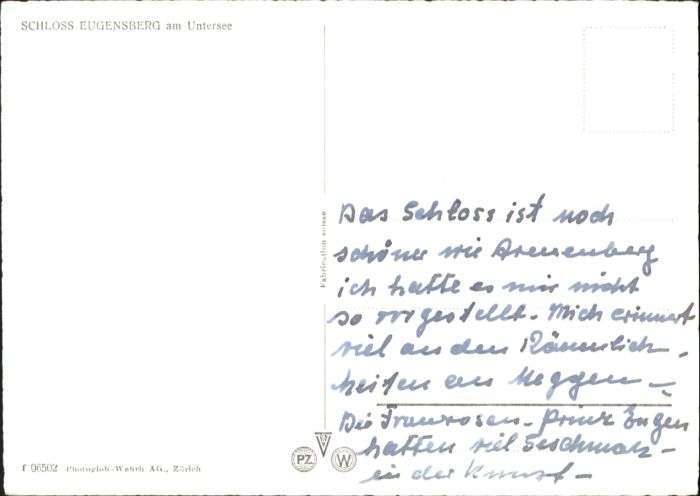 SCHLOSS EUGENSBERG am Untersee
Das Schloss ist noch
schöner wie Arenenberg
ich hatte es mir nicht
so vorgestellt. Mich erinnert
viel an den Räumlich-
keiten an Meggen –
Die Franzosen – Prinz Eugen
hatten viel Geschmack –
in der Kunst –
Fabrication suisse
PZ W
f 06502 Photoglob-Wehrli AG., Zürich